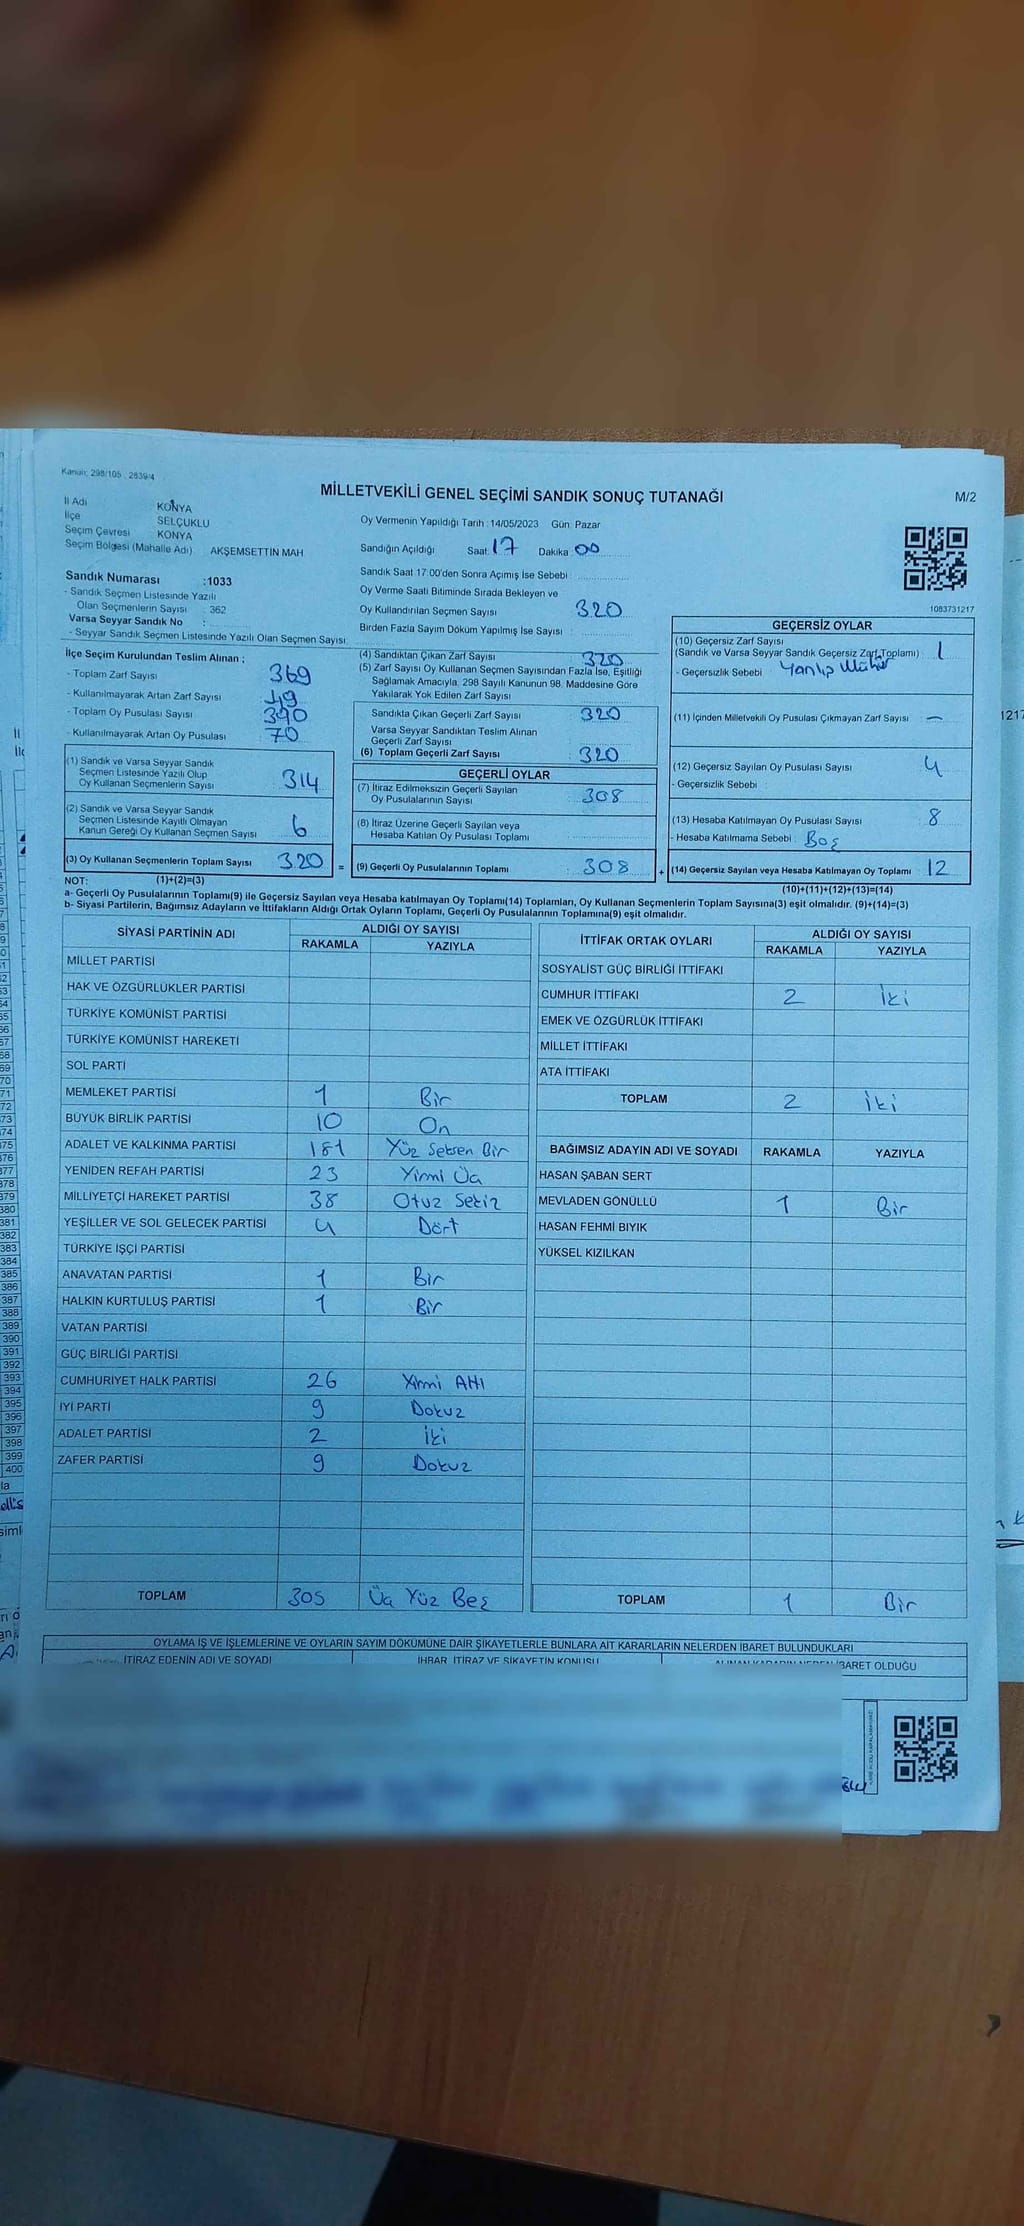 Kanun: 298/105 , 2839/4
MİLLETVEKİLİ GENEL SEÇİMİ SANDIK SONUÇ TUTANAĞI
M/2
İl Adı KONYA
İlçe SELÇUKLU
Seçim Çevresi KONYA
Seçim Bölgesi (Mahalle Adı) AKŞEMSETTİN MAH
Sandık Numarası :1033
- Sandık Seçmen Listesinde Yazılı
Olan Seçmenlerin Sayısı : 362
Varsa Seyyar Sandık No :
- Seyyar Sandık Seçmen Listesinde Yazılı Olan Seçmen Sayısı:
İlçe Seçim Kurulundan Teslim Alınan ;
- Toplam Zarf Sayısı 369
- Kullanılmayarak Artan Zarf Sayısı 49
- Toplam Oy Pusulası Sayısı 390
- Kullanılmayarak Artan Oy Pusulası 70
(1) Sandık ve Varsa Seyyar Sandık
Seçmen Listesinde Yazılı Olup
Oy Kullanan Seçmenlerin Sayısı 314
(2) Sandık ve Varsa Seyyar Sandık
Seçmen Listesinde Kayıtlı Olmayan
Kanun Gereği Oy Kullanan Seçmen Sayısı 6
(3) Oy Kullanan Seçmenlerin Toplam Sayısı 320 =
(1)+(2)=(3)
Oy Vermenin Yapıldığı Tarih : 14/05/2023 Gün: Pazar
Sandığın Açıldığı Saat: 17 Dakika: 00
Sandık Saat 17:00'den Sonra Açımış İse Sebebi
Oy Verme Saati Bitiminde Sırada Bekleyen ve
Oy Kullandırılan Seçmen Sayısı 320
Birden Fazla Sayım Döküm Yapılmış İse Sayısı :
(4) Sandıktan Çıkan Zarf Sayısı 320
(5) Zarf Sayısı Oy Kullanan Seçmen Sayısından Fazla İse, Eşitliği
Sağlamak Amacıyla, 298 Sayılı Kanunun 98. Maddesine Göre
Yakılarak Yok Edilen Zarf Sayısı
Sandıkta Çıkan Geçerli Zarf Sayısı 320
Varsa Seyyar Sandıktan Teslim Alınan
Geçerli Zarf Sayısı
(6) Toplam Geçerli Zarf Sayısı 320
GEÇERLİ OYLAR
(7) İtiraz Edilmeksizin Geçerli Sayılan
Oy Pusulalarının Sayısı 308
(8) İtiraz Üzerine Geçerli Sayılan veya
Hesaba Katılan Oy Pusulası Toplamı
(9) Geçerli Oy Pusulalarının Toplamı 308 +
1083731217
GEÇERSİZ OYLAR
(10) Geçersiz Zarf Sayısı
(Sandık ve Varsa Seyyar Sandık Geçersiz Zarf Toplamı) 1
- Geçersizlik Sebebi : Yanlış Mühür
(11) İçinden Milletvekili Oy Pusulası Çıkmayan Zarf Sayısı –
(12) Geçersiz Sayılan Oy Pusulası Sayısı 4
- Geçersizlik Sebebi :
(13) Hesaba Katılmayan Oy Pusulası Sayısı 8
- Hesaba Katılmama Sebebi : Boş
(14) Geçersiz Sayılan veya Hesaba Katılmayan Oy Toplamı 12
(10)+(11)+(12)+(13)=(14)
NOT:
a- Geçerli Oy Pusulalarının Toplamı(9) ile Geçersiz Sayılan veya Hesaba katılmayan Oy Toplamı(14) Toplamları, Oy Kullanan Seçmenlerin Toplam Sayısına(3) eşit olmalıdır. (9)+(14)=(3)
b- Siyasi Partilerin, Bağımsız Adayların ve İttifakların Aldığı Ortak Oyların Toplamı, Geçerli Oy Pusulalarının Toplamına(9) eşit olmalıdır.
SİYASİ PARTİNİN ADI ALDIĞI OY SAYISI
RAKAMLA YAZIYLA
MİLLET PARTİSİ
HAK VE ÖZGÜRLÜKLER PARTİSİ
TÜRKİYE KOMÜNİST PARTİSİ
TÜRKİYE KOMÜNİST HAREKETİ
SOL PARTİ
MEMLEKET PARTİSİ 1 Bir
BÜYÜK BİRLİK PARTİSİ 10 On
ADALET VE KALKINMA PARTİSİ 181 Yüz Seksen Bir
YENİDEN REFAH PARTİSİ 23 Yirmi Üç
MİLLİYETÇİ HAREKET PARTİSİ 38 Otuz Sekiz
YEŞİLLER VE SOL GELECEK PARTİSİ 4 Dört
TÜRKİYE İŞÇİ PARTİSİ
ANAVATAN PARTİSİ 1 Bir
HALKIN KURTULUŞ PARTİSİ 1 Bir
VATAN PARTİSİ
GÜÇ BİRLİĞİ PARTİSİ
CUMHURİYET HALK PARTİSİ 26 Yirmi Altı
İYİ PARTİ 9 Dokuz
ADALET PARTİSİ 2 İki
ZAFER PARTİSİ 9 Dokuz
TOPLAM 305 Üç Yüz Beş
İTTİFAK ORTAK OYLARI ALDIĞI OY SAYISI
RAKAMLA YAZIYLA
SOSYALİST GÜÇ BİRLİĞİ İTTİFAKI
CUMHUR İTTİFAKI 2 İki
EMEK VE ÖZGÜRLÜK İTTİFAKI
MİLLET İTTİFAKI
ATA İTTİFAKI
TOPLAM 2 İki
BAĞIMSIZ ADAYIN ADI VE SOYADI RAKAMLA YAZIYLA
HASAN ŞABAN SERT
MEVLADEN GÖNÜLLÜ 1 Bir
HASAN FEHMİ BIYIK
YÜKSEL KIZILKAN
TOPLAM 1 Bir
OYLAMA İŞ VE İŞLEMLERİNE VE OYLARIN SAYIM DÖKÜMÜNE DAİR ŞİKAYETLERLE BUNLARA AİT KARARLARIN NELERDEN İBARET BULUNDUKLARI
İTİRAZ EDENİN ADI VE SOYADI İHBAR, İTİRAZ VE ŞİKAYETİN KONUSU ALINAN KARARIN NEDEN İBARET OLDUĞU